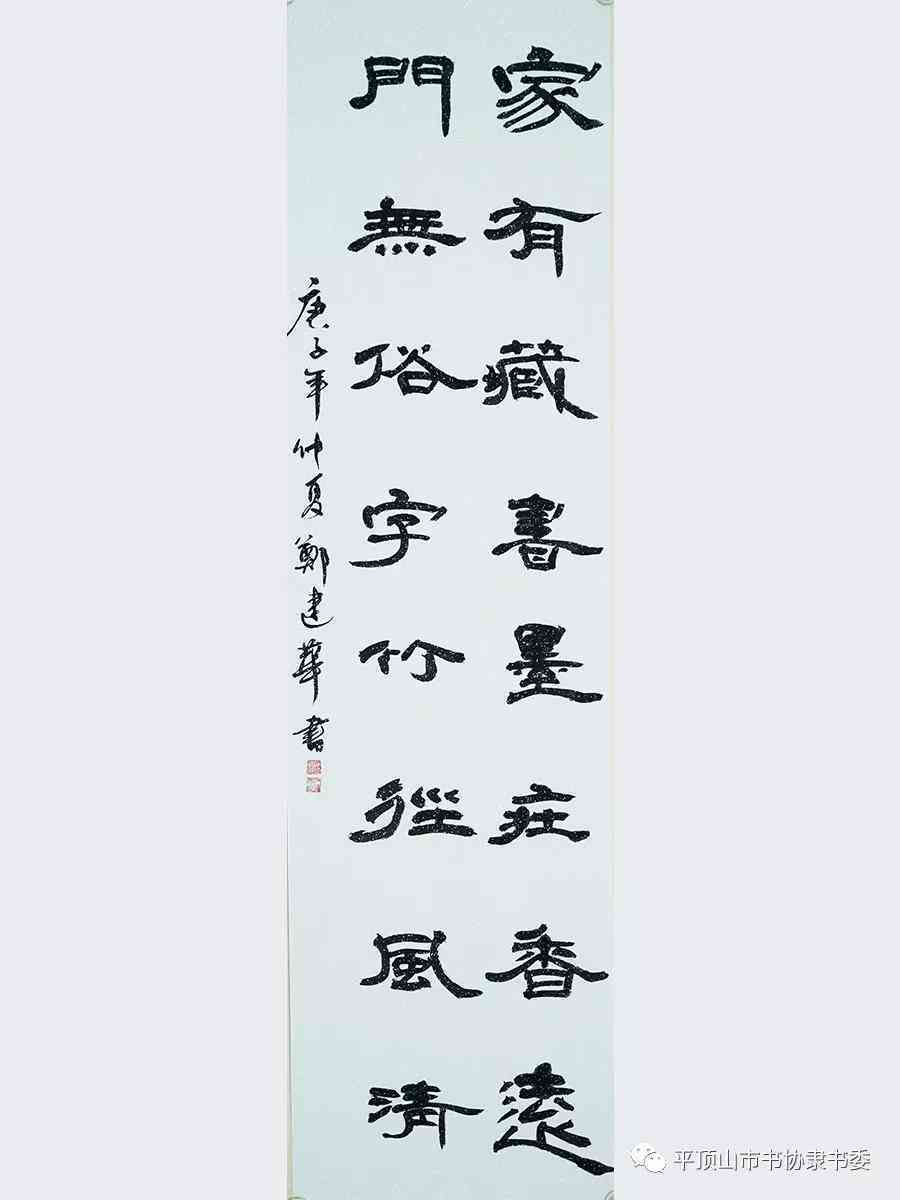 家有藏書墨莊香遠
門無俗字竹徑風清
庚子年仲夏鄭建華書
平顶山市书协隶书委